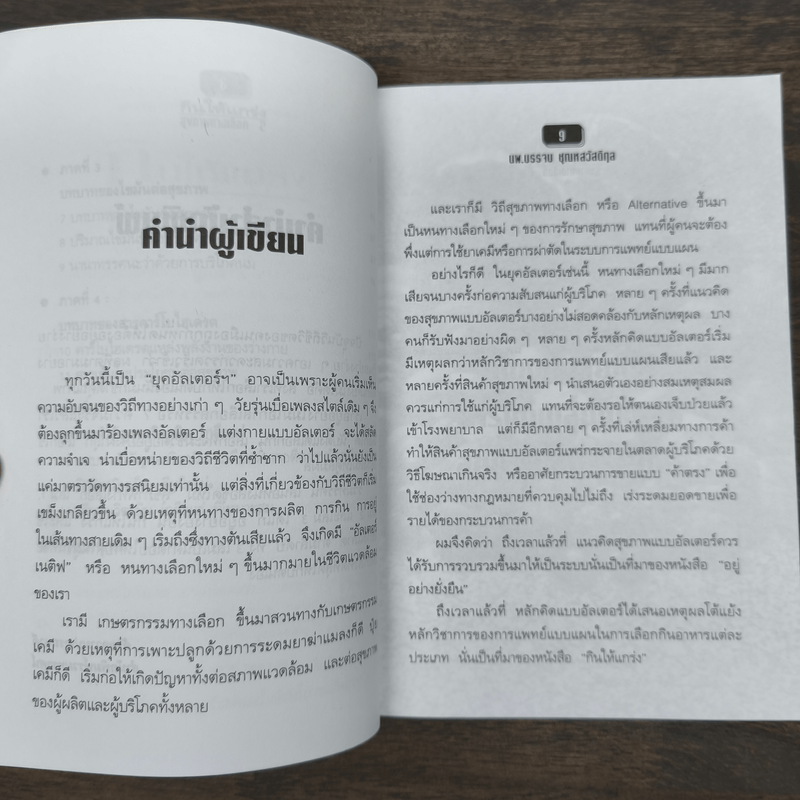 คำนำผู้เขียน
ทุกวันนี้เป็น “ยุคอัลเตอร์ฯ” อาจเป็นเพราะผู้คนเริ่มเห็น
ความอับจนของวิถีทางอย่างเก่า ๆ วัยรุ่นเบื่อเพลงสไตล์เดิม ๆ จึง
ต้องลุกขึ้นมาร้องเพลงอัลเตอร์ แต่งกายแบบอัลเตอร์ จะได้สลัด
ความจำเจ น่าเบื่อหน่ายของวิถีชีวิตที่ซ้ำซาก ว่าไปแล้วนั่นยังเป็น
แค่มาตราวัดทางรสนิยมเท่านั้น แต่สิ่งที่เกี่ยวข้องกับวิถีชีวิตก็เริ่ม
เขม็งเกลียวขึ้น ด้วยเหตุที่หนทางของการผลิต การกิน การอยู่
ในเส้นทางสายเดิม ๆ เริ่มถึงซึ่งทางตันเสียแล้ว จึงเกิดมี “อัลเตอร์
เนติฟ” หรือ หนทางเลือกใหม่ ๆ ขึ้นมากมายในชีวิตแวดล้อม
ของเรา
เรามี เกษตรกรรมทางเลือก ขึ้นมาสวนทางกับเกษตรกรรม
เคมี ด้วยเหตุที่การเพาะปลูกด้วยการระดมยาฆ่าแมลงก็ดี ปุ๋ย
เคมีก็ดี เริ่มก่อให้เกิดปัญหาทั้งต่อสภาพแวดล้อม และต่อสุขภาพ
ของผู้ผลิตและผู้บริโภคทั้งหลาย
9
นพ.บรรจบ ชุณหสวัสดิกุล
และเราก็มี วิถีสุขภาพทางเลือก หรือ Alternative ขึ้นมา
เป็นหนทางเลือกใหม่ ๆ ของการรักษาสุขภาพ แทนที่ผู้คนจะต้อง
พึ่งแต่การใช้ยาเคมีหรือการผ่าตัดในระบบการแพทย์แบบแผน
อย่างไรก็ดี ในยุคอัลเตอร์เช่นนี้ หนทางเลือกใหม่ ๆ มีมาก
เสียจนบางครั้งก่อความสับสนแก่ผู้บริโภค หลาย ๆ ครั้งที่แนวคิด
ของสุขภาพแบบอัลเตอร์บางอย่างไม่สอดคล้องกับหลักเหตุผล บาง
คนก็รับฟังมาอย่างผิด ๆ หลาย ๆ ครั้งหลักคิดแบบอัลเตอร์เริ่ม
มีเหตุผลกว่าหลักวิชาการของการแพทย์แบบแผนเสียแล้ว และ
หลายครั้งที่สินค้าสุขภาพใหม่ ๆ นำเสนอตัวเองอย่างสมเหตุสมผล
ควรแก่การใช้แก่ผู้บริโภค แทนที่จะต้องรอให้ตนเองเจ็บป่วยแล้ว
เข้าโรงพยาบาล แต่ก็มีอีกหลาย ๆ ครั้งที่เล่ห์เหลี่ยมทางการค้า
ทำให้สินค้าสุขภาพแบบอัลเตอร์แพร่กระจายในตลาดผู้บริโภคด้วย
วิธีโฆษณาเกินจริง หรืออาศัยกระบวนการขายแบบ “ค้าตรง” เพื่อ
ใช้ช่องว่างทางกฎหมายที่ควบคุมไปไม่ถึง เร่งระดมยอดขายเพื่อ
รายได้ของกระบวนการค้า
ผมจึงคิดว่า ถึงเวลาแล้วที่ แนวคิดสุขภาพแบบอัลเตอร์ควร
ได้รับการรวบรวมขึ้นมาให้เป็นระบบนั่นเป็นที่มาของหนังสือ “อยู่
อย่างยั่งยืน”
ถึงเวลาแล้วที่ หลักคิดแบบอัลเตอร์ได้เสนอเหตุผลโต้แย้ง
หลักวิชาการของการแพทย์แบบแผนในการเลือกกินอาหารแต่ละ
ประเภท นั่นเป็นที่มาของหนังสือ “กินให้แกร่ง”